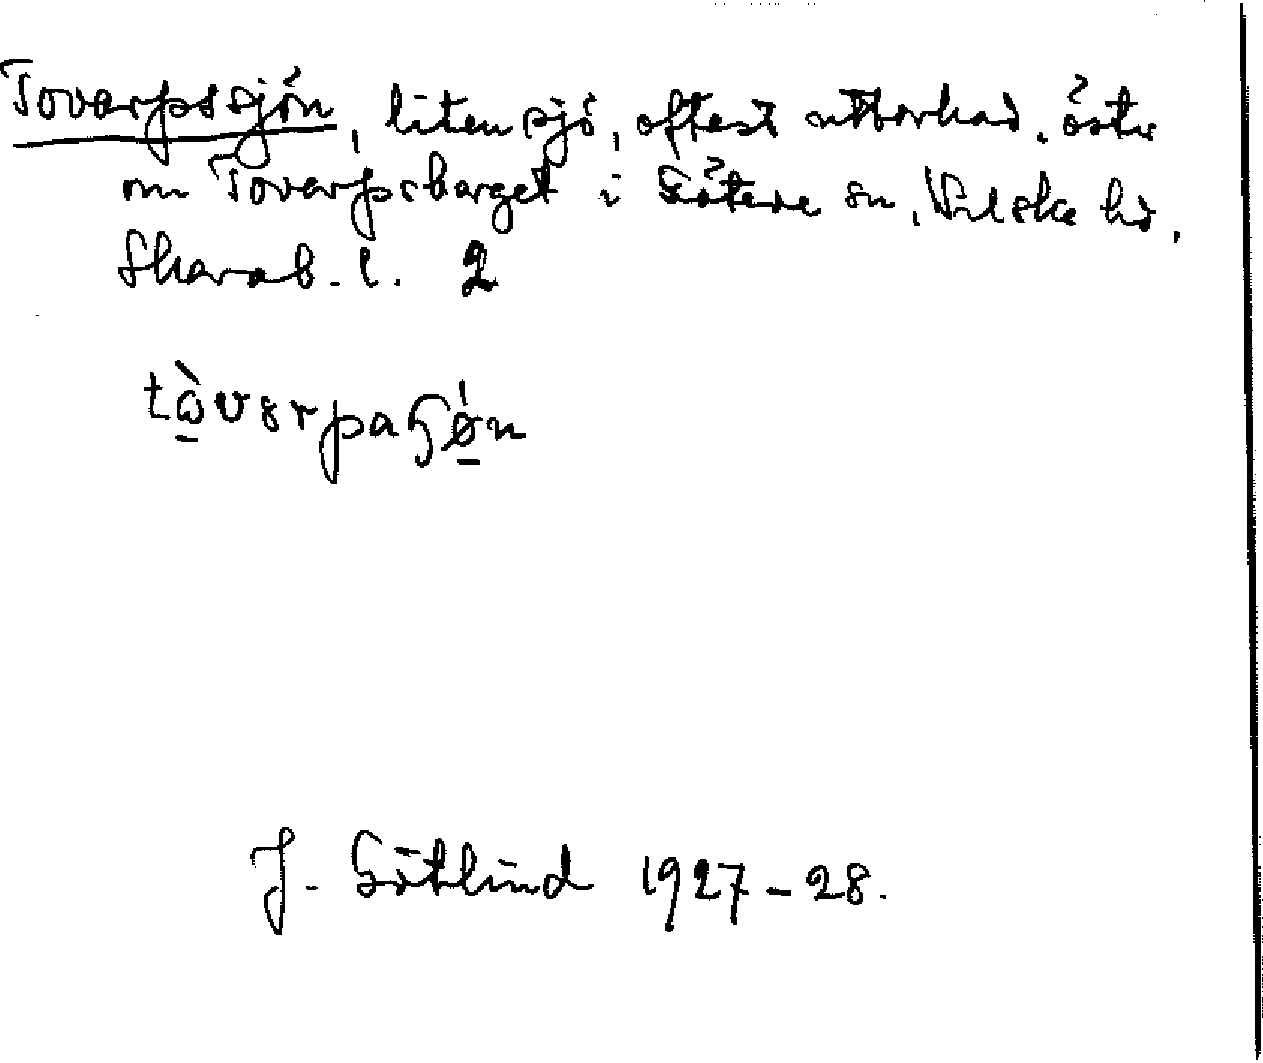 Tovarpssjön, liten sjö, oftast uttorkad, öster
om Tovarpsberget i Götene sn, Vilske hd,
Skarab. l. 2
tòvərpaʃǿn
J. Götlind 1927-28.